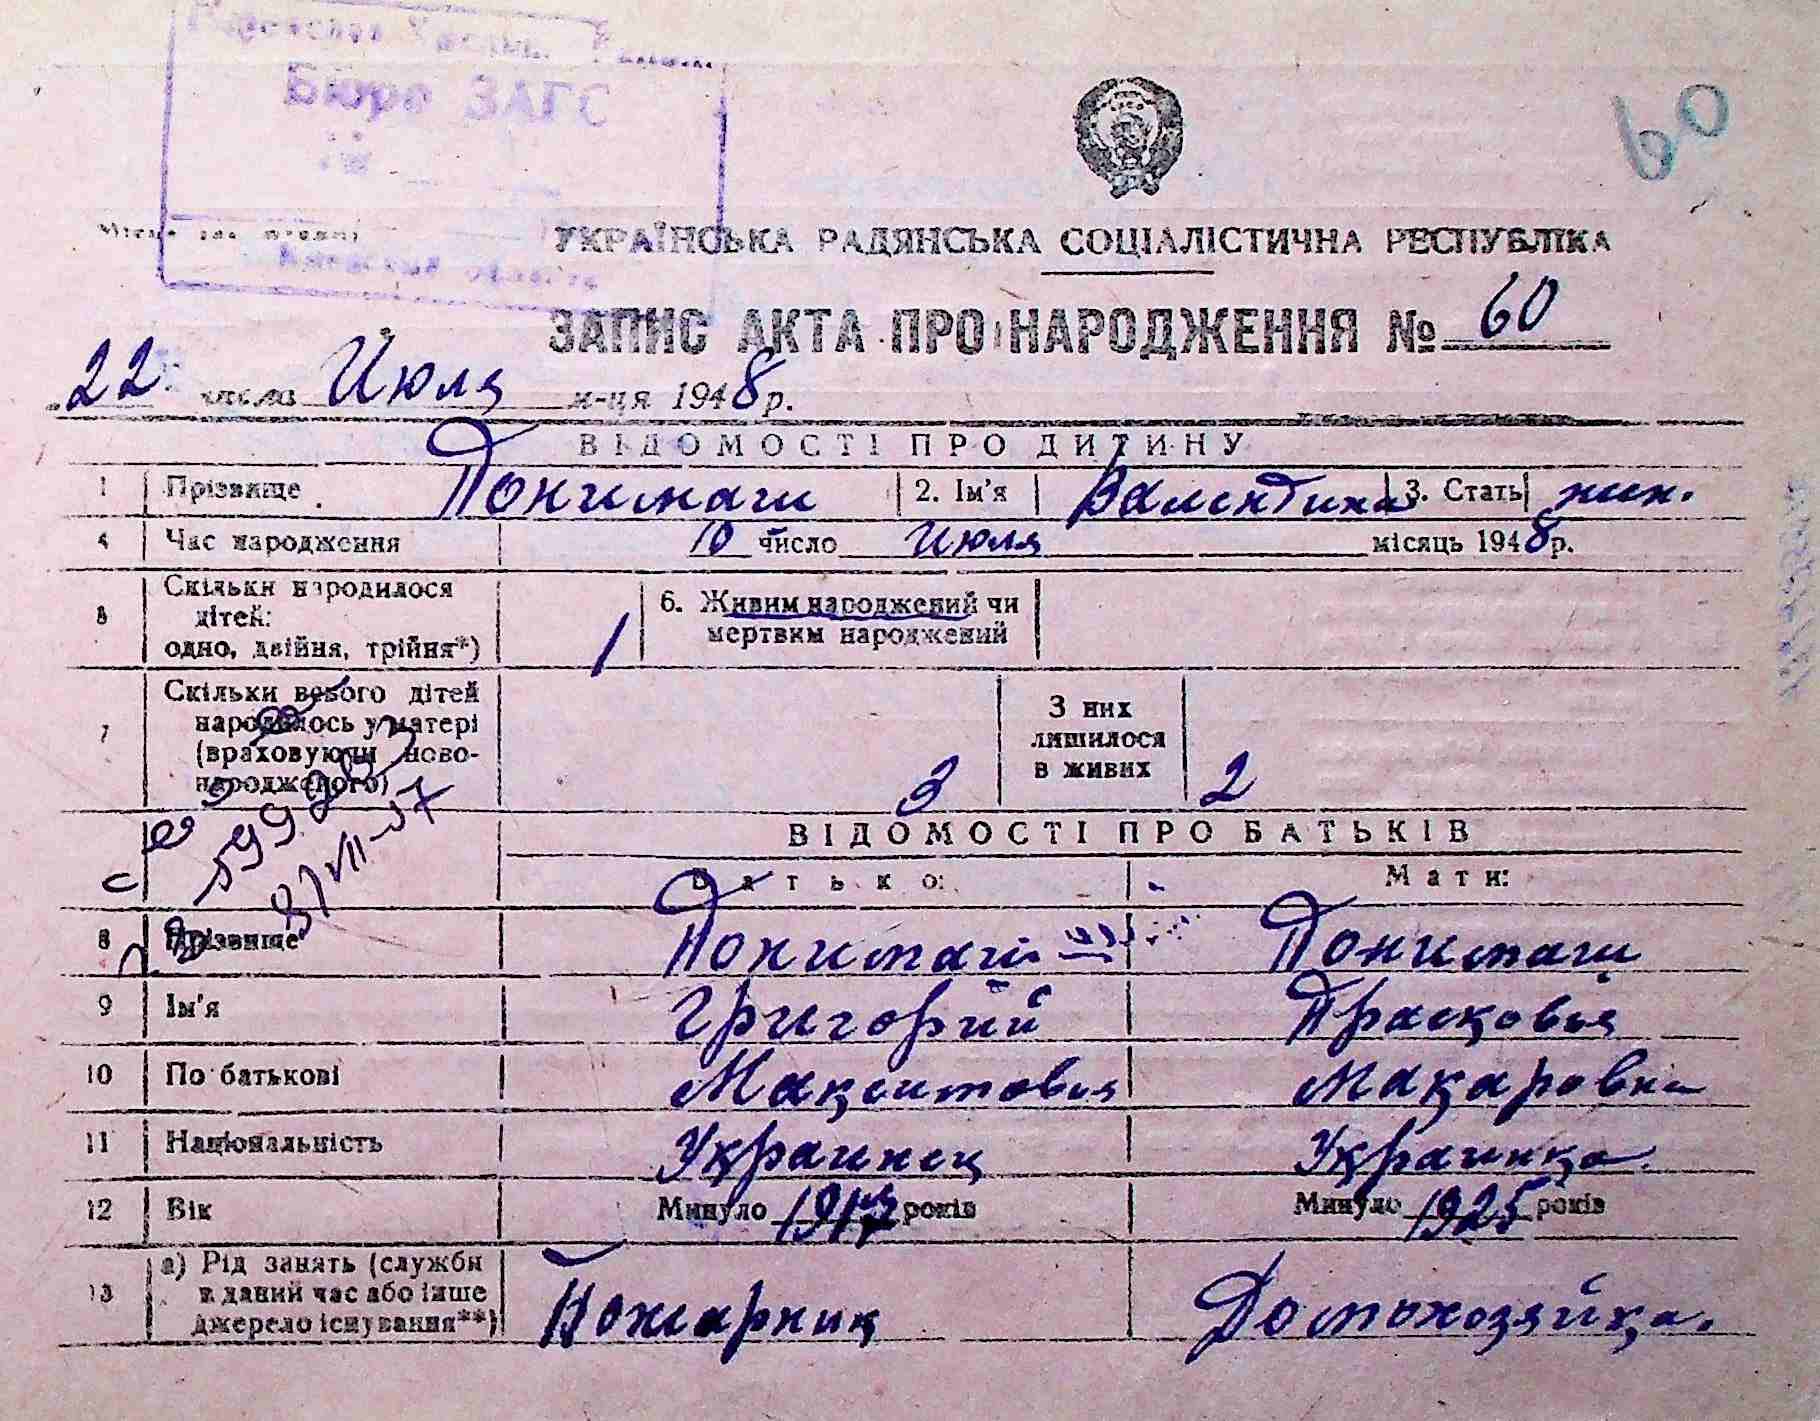 Бюро ЗАГС
60
УКРАЇНСЬКА РАДЯНСЬКА СОЦІАЛІСТИЧНА РЕСПУБЛІКА
ЗАПИС АКТА ПРО НАРОДЖЕННЯ № 60
22 числа Июля м-ця 1948 р.
ВІДОМОСТІ ПРО ДИТИНУ
1 Прізвище Понимаш 2. Ім'я Валентина 3. Стать жин.
4 Час народження 10 число Июля місяць 1948 р.
5 Скільки народилося
дітей:
одно, двійня, трійня*) 1
6. Живим народжений чи
мертвим народжений
7 Скільки всього дітей
народилось у матері
(враховуючи ново-
народженого) 3
З них
лишилося
в живих 2
ВІДОМОСТІ ПРО БАТЬКІВ
Батько: Мати:
8 Прізвище Понимаш Понимаш
9 Ім'я Григорий Прасковья
10 По батькові Макаровна
11 Національність Украинец Украинка
12 Вік Минуло 1917 років Минуло 1925 років
13 а) Рід занять (служби
в даний час або інше
джерело існування**) Пожарник Домохозяйка.